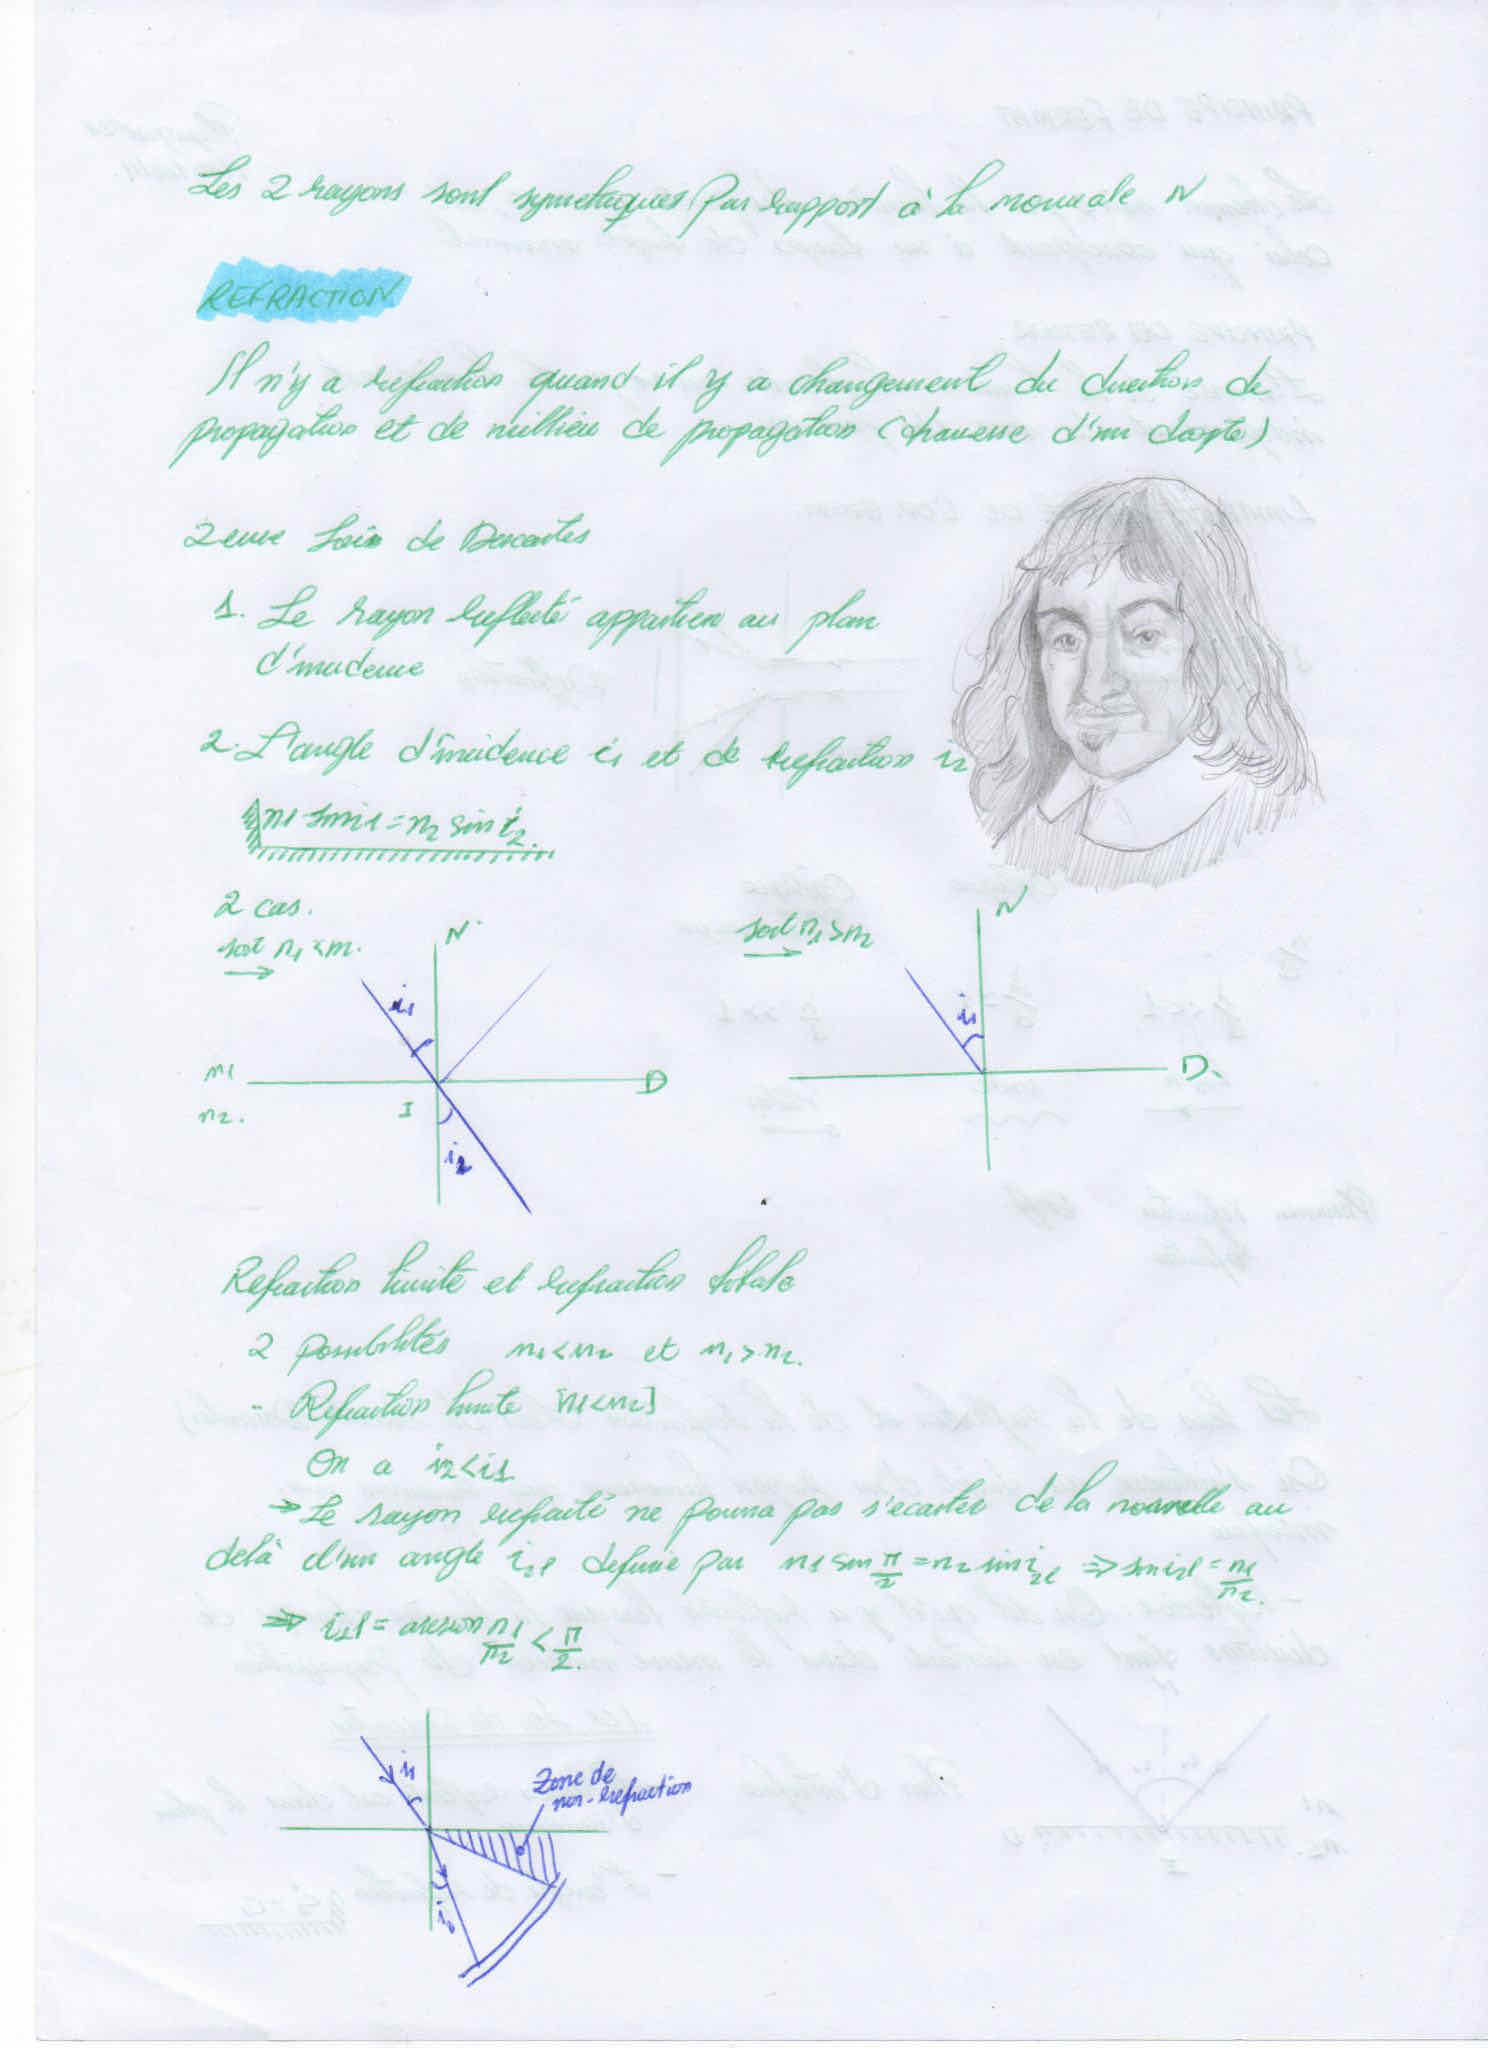 Les 2 rayons sont symetriques par rapport à la normale N
REFRACTION
Il n'y a refraction quand il y a changement du direction de
propagation et de millieu de propagation (traverse d'un dioptre)
2eme Loi de Descartes
1. Le rayon reflecté appartien au plan
d'incidence
2. L'angle d'incidence i1 et de refraction i2
n1 sin i1 = n2 sin i2.
2 cas.
soit n1 < n2.
N
soit n1 > n2
N
i1
i1
n1
D
D.
n2.
I
i2
Refraction limite et refraction totale
2 possibilités n1 < n2 et n1 > n2.
- Refraction limite [n1 < n2]
On a i2 < i1
⇒ Le rayon refracté ne pourra pas s'ecarter de la normale au
delà d'un angle i2l definie par n1 sin π/2 = n2 sin i2l ⇒ sin i2l = n1/n2.
⇒ i2l = arcsin n1/n2 < π/2.
i1
Zone de
non-refraction